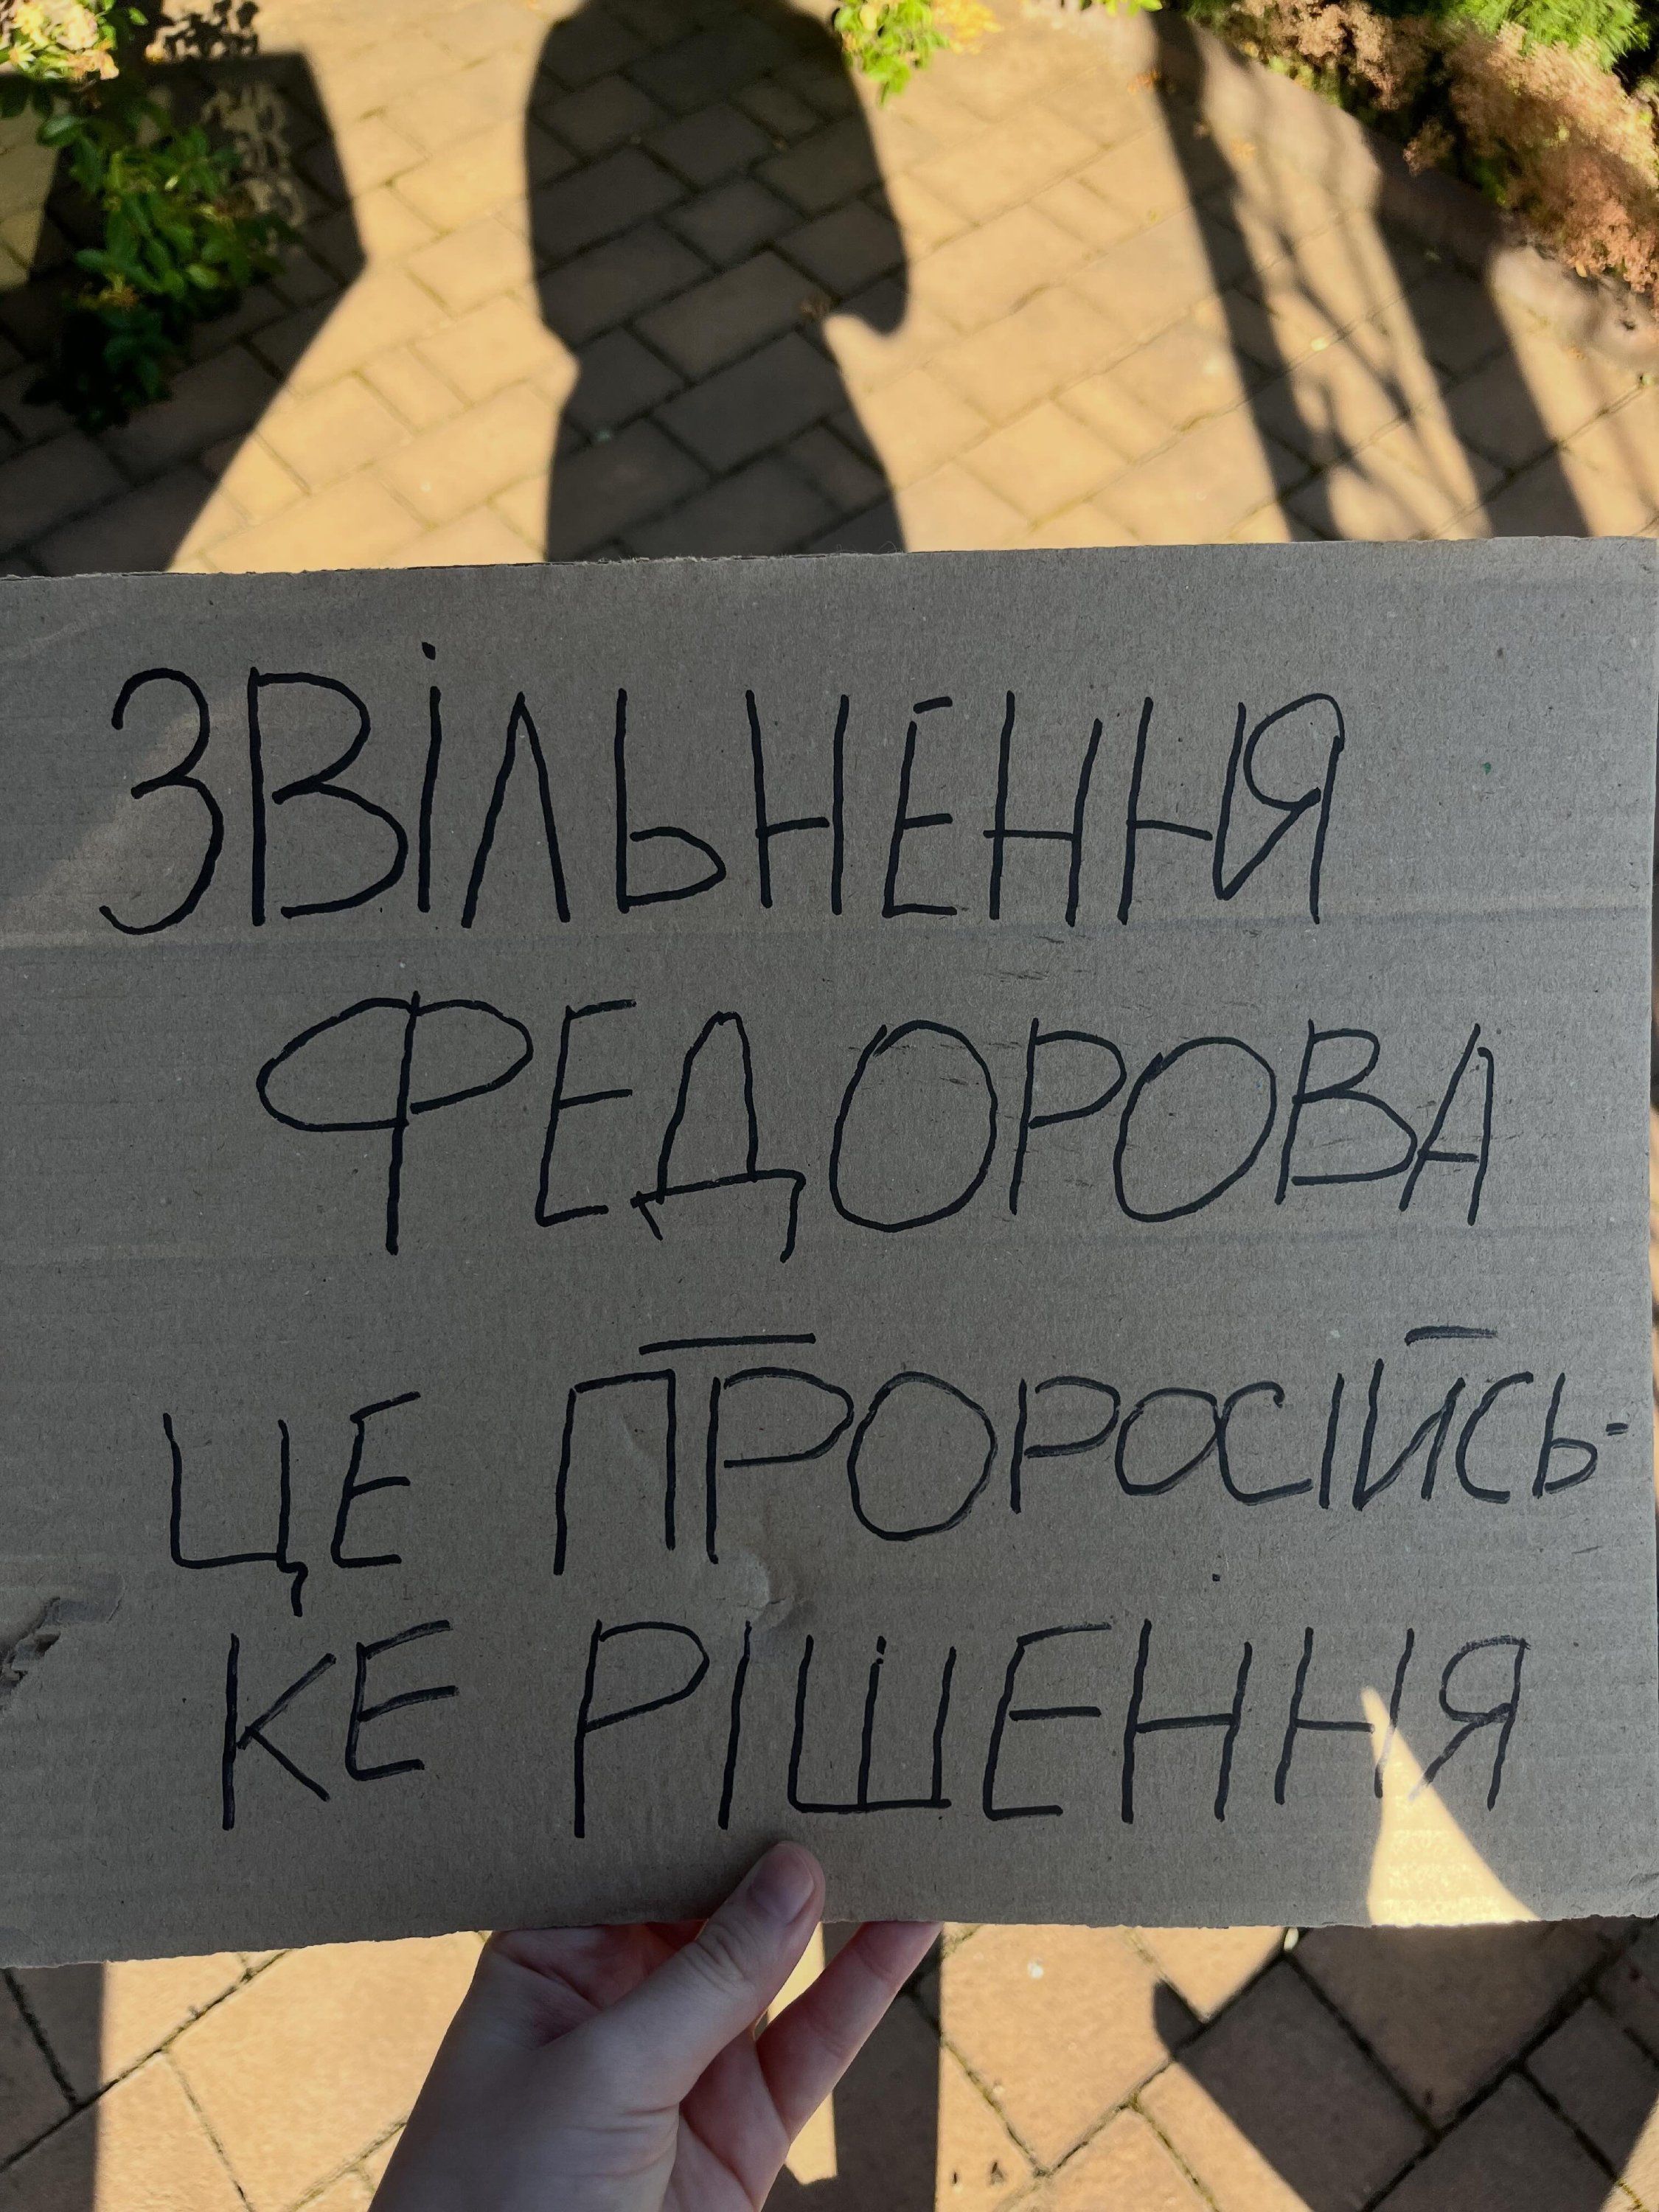 ЗВІЛЬНЕННЯ
ФЕДОРОВА
ЦЕ ПРОРОСІЙСЬ-
КЕ РІШЕННЯ